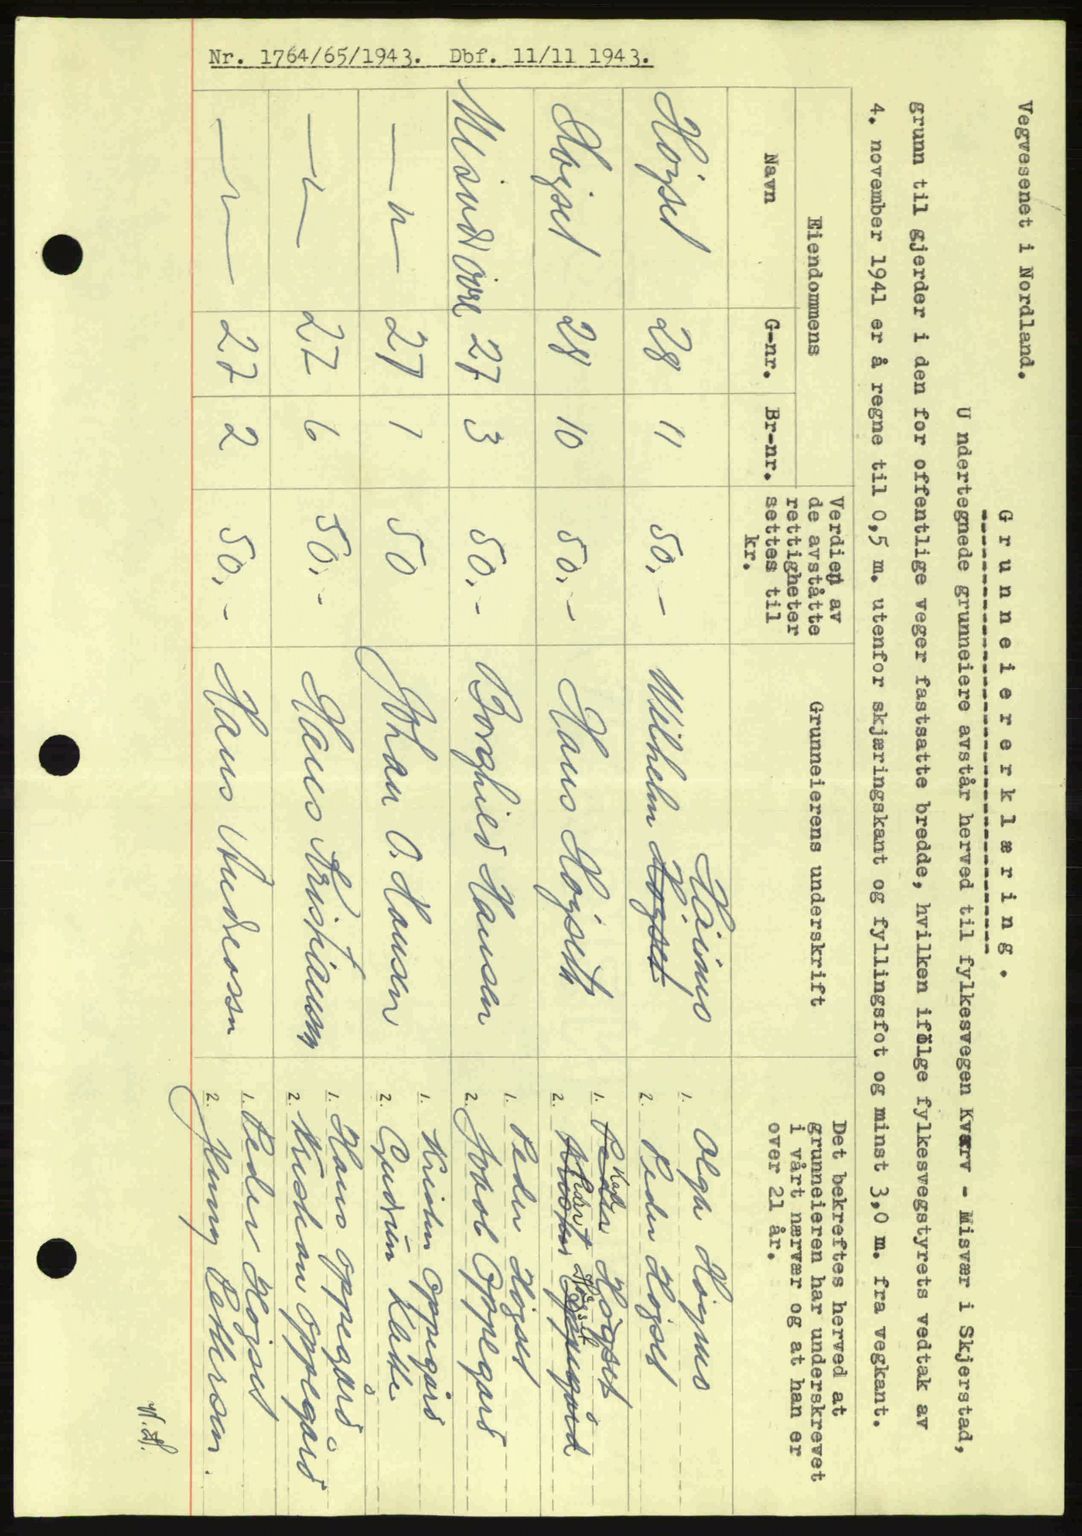 Nr. 1764/65/1943. Dbf. 11/11 1943.
Vegvesenet i Nordland.
G r u n n e i e r e r k l æ r i n g .
U ndertegnede grunneiere avstår herved til fylkesvegen Kværv - Misvær i Skjerstad,
grunn til gjerder i den for offentlige veger fastsatte bredde, hvilken ifølge fylkesvegstyrets vedtak av
4. november 1941 er å regne til 0,5 m. utenfor skjæringskant og fyllingsfot og minst 3,0 m. fra vegkant.
Eiendommens
Navn
G-nr.
Br-nr.
Verdien av
de avståtte
rettigheter
settes til
kr.
Grunneierens underskrift
Det bekreftes herved at
grunneieren har underskrevet
i vårt nærvær og at han er
over 21 år.
Høgset 28 11 50.- Wilhelm Høgset
1. Olga
2. Peder Høgset
Høgset 28 10 50.- Hans Høgseth
1. Peder Høgset
2.
27 3 50.- Borghild Hansen
1. Peder Høgset
2. Jakob Oppegård
— " — 27 1 50 Johan O. Hansen
1. Kristen Oppegård
2. Gudrun
— " — 27 6 50.- Hans Kristiansen
1. Hans Oppegård
2. Kristian Oppegård
— " — 27 2 50.- Hans Andreassen
1. Peder Høgset
2. Pettersen.